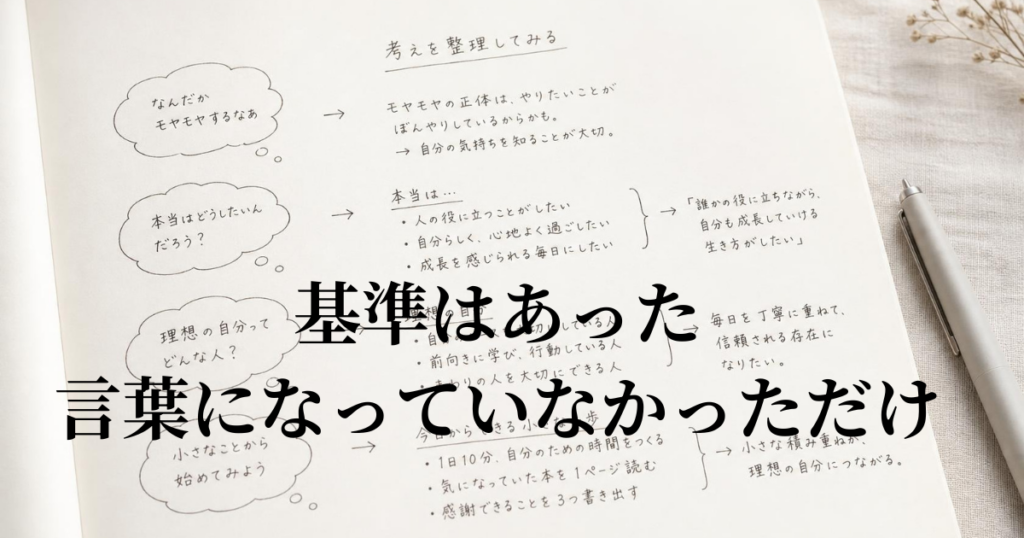 考えを整理してみる
なんだか
モヤモヤするなあ
→
モヤモヤの正体は、やりたいことが
ぼんやりしているからかも。
→ 自分の気持ちを知ることが大切。
本当はどうしたいん
だろう？
→
本当は…
・人の役に立つことがしたい
・自分らしく、心地よく過ごしたい
・成長を感じられる毎日にしたい
→ 「誰かの役に立ちながら、
自分も成長していける
生き方がしたい」
基準はあった
言葉になっていなかっただけ
理想の自分って
どんな人？
理想の自分
・前向きに学び、行動している人
人を大切にできる人
→ 毎日を丁寧に重ねて、
信頼される存在に
なりたい。
小さなことから
始めてみよう
→
今日からできる小
歩
・1日10分、自分のための時間をつくる
・気になっていた本を1ページ読む
・感謝できることを3つ書き出す
→ 小さな積み重ねが、
理想の自分につながる。